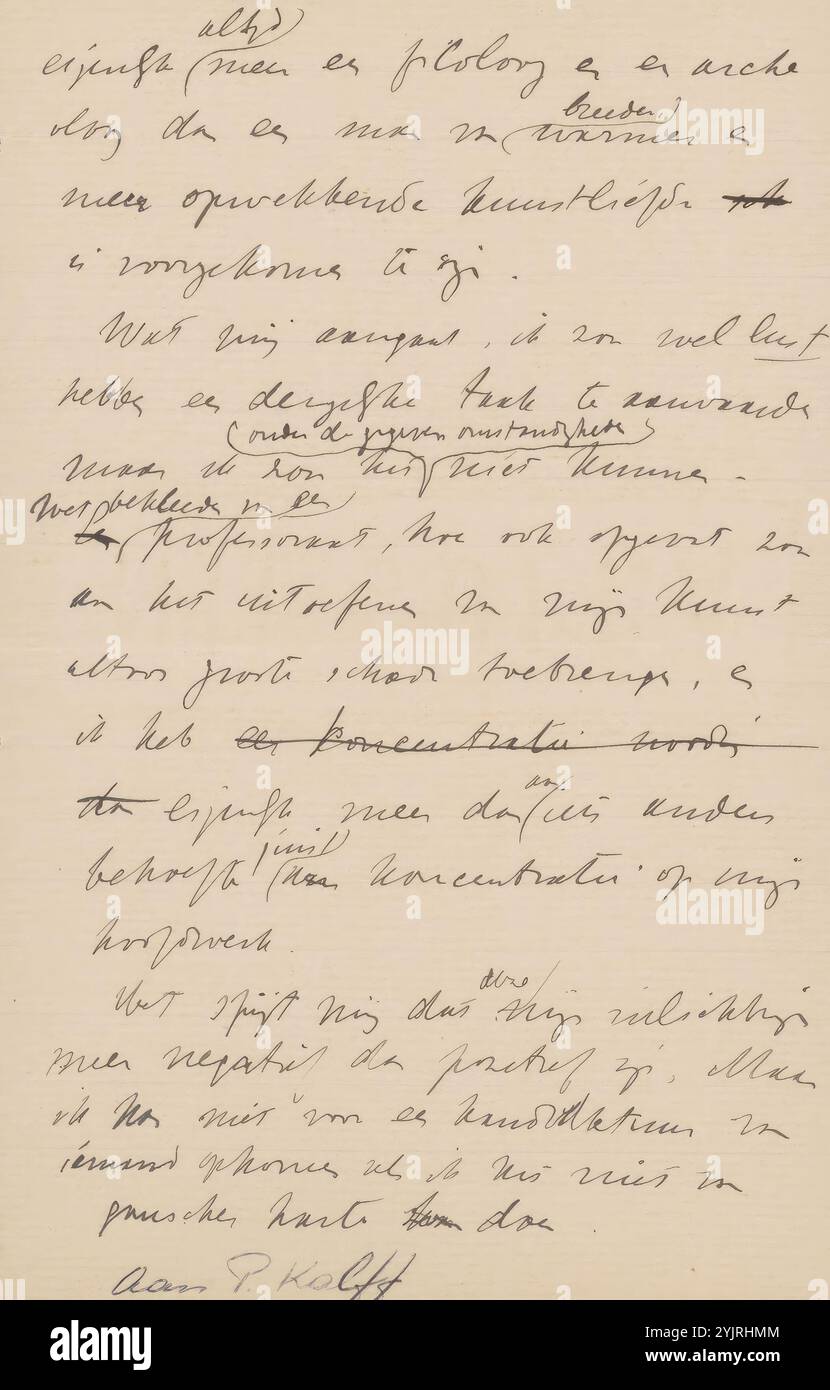 altijd
eigenlijk meer een filoloog en een arche
oloog dan een man van warmer en
breeder
meer opwekkende kunstliefde
is voorgekomen te zijn.
Wat mij aangaat, ik zou wel lust
hebben een dergelijke taak te aanvaarden
(onder de gegeven omstandigheden)
maar ik zou het niet kunnen.
Het bekleeden van een
professoraat, hoe ook opgevat zou
aan het uitoefenen van mijn kunst
altoos groote schade toebrengen, en
ik heb een koncentratie noodig
dan eigenlijk meer dan aan iets anders
behoefte juist aan koncentratie op mijn
hoofdwerk.
Het spijt mij dat deze mijn inlichtingen
meer negatief dan positief zijn. Maar
ik kan niet voor een kandidatuur van
iemand opkomen als ik het niet van
ganscher harte doe.
Aan P. Kalff
alamy
Image ID: 2YJRHMM
www.alamy.com